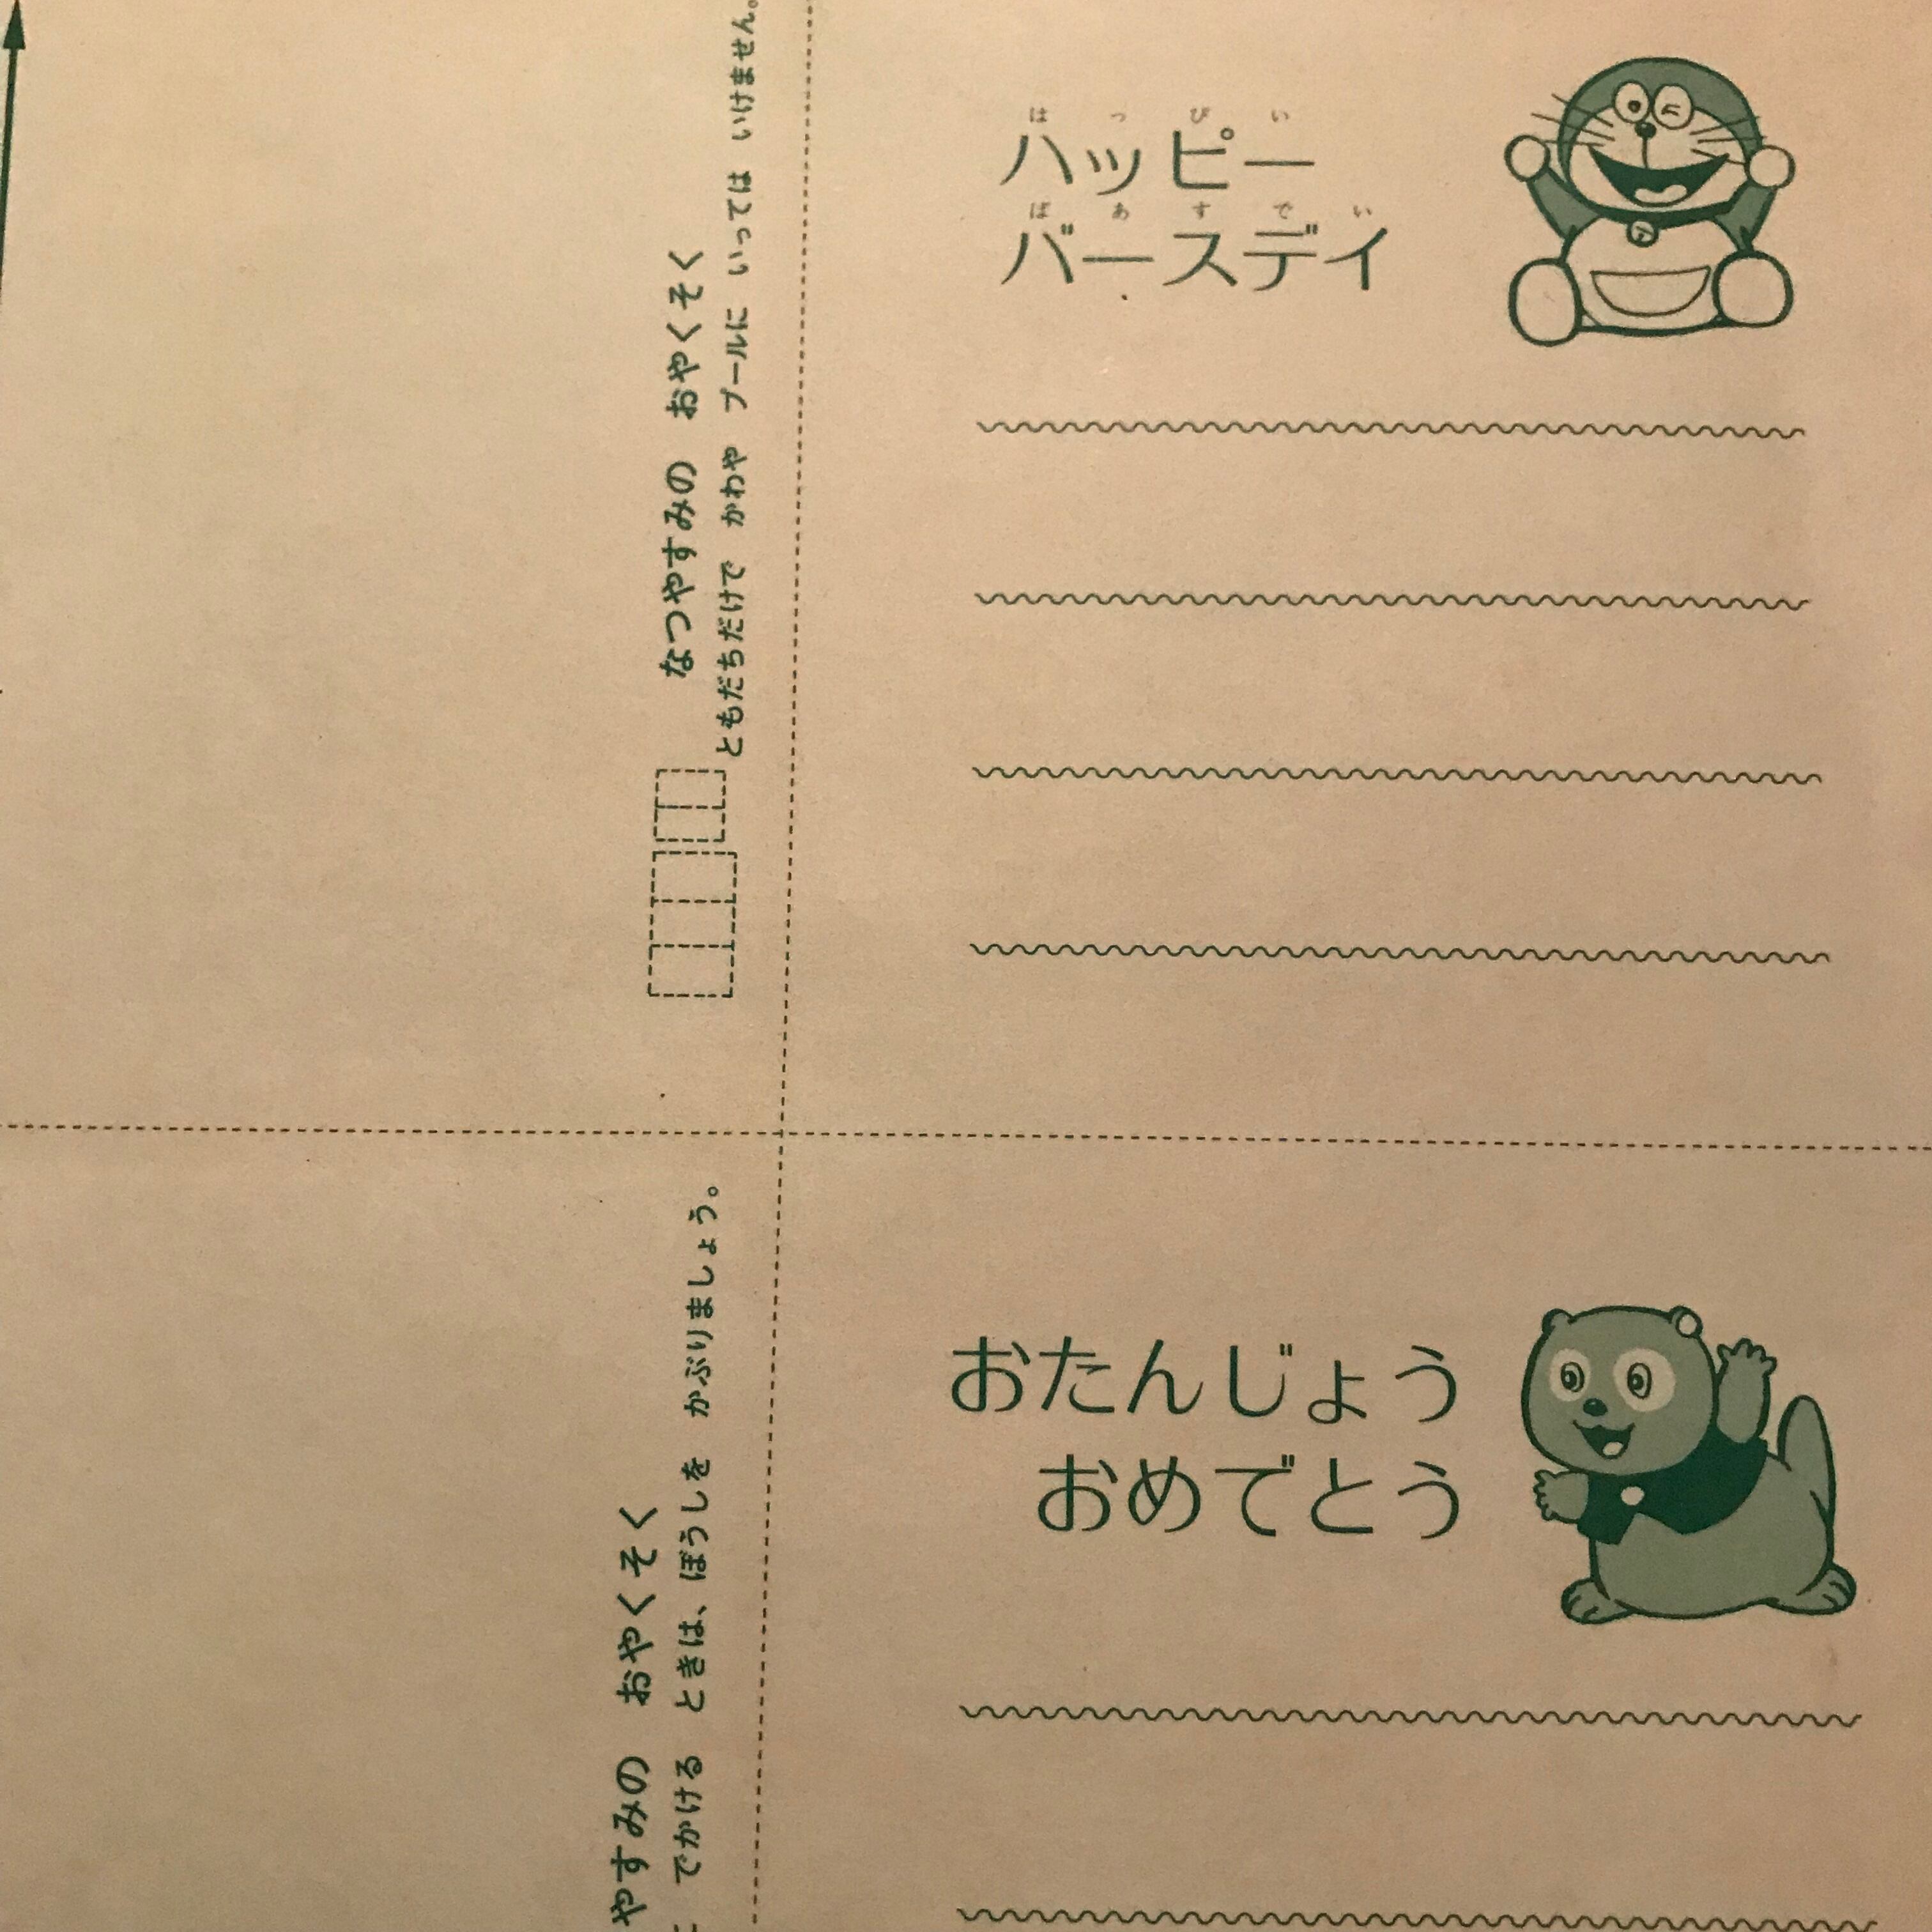 はっぴい
ハッピー
ばあすでい
バースデイ
なつやすみの おやくそく
ともだちだけで かわや プールに いっては いけません。
おたんじょう
おめでとう
やすみの おやくそく
でかける ときは、ぼうしを かぶりましょう。